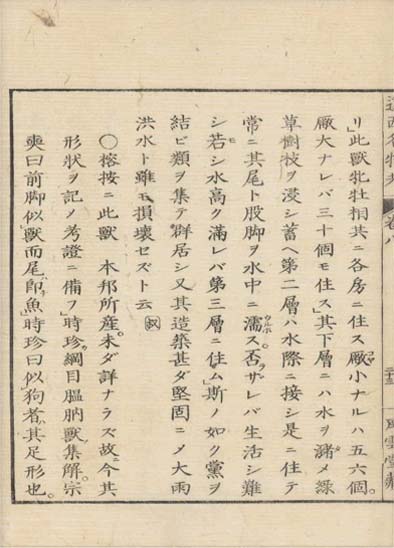 リ」此獸牝牡相共ニ各房ニ住ス厰小ナルハ五六個。
厰大ナレバ三十個モ住ス」其下層ニハ水ヲ瀦メ緑
草樹枝ヲ浸シ蓄ヘ第二層ハ水際ニ接シ是ニ住テ
常ニ其尾ト股脚ヲ水中ニ濡ス。否ヲザレバ生活シ難
シ若シ水高ク滿レバ第三層ニ住ム」斯ノ如ク黨ヲ
結ビ類ヲ集テ群居シ又其造築甚ダ堅固ニメ大雨
洪水ト雖モ損壞セズト云
○榕按ニ此獸 本邦所産。未ダ詳ナラズ故ニ今其
形狀ヲ記ノ考證ニ備フ」時珍綱目膃肭獸集解。宗
奭曰前脚似獸而尾即魚」時珍曰似狗者其足形也。